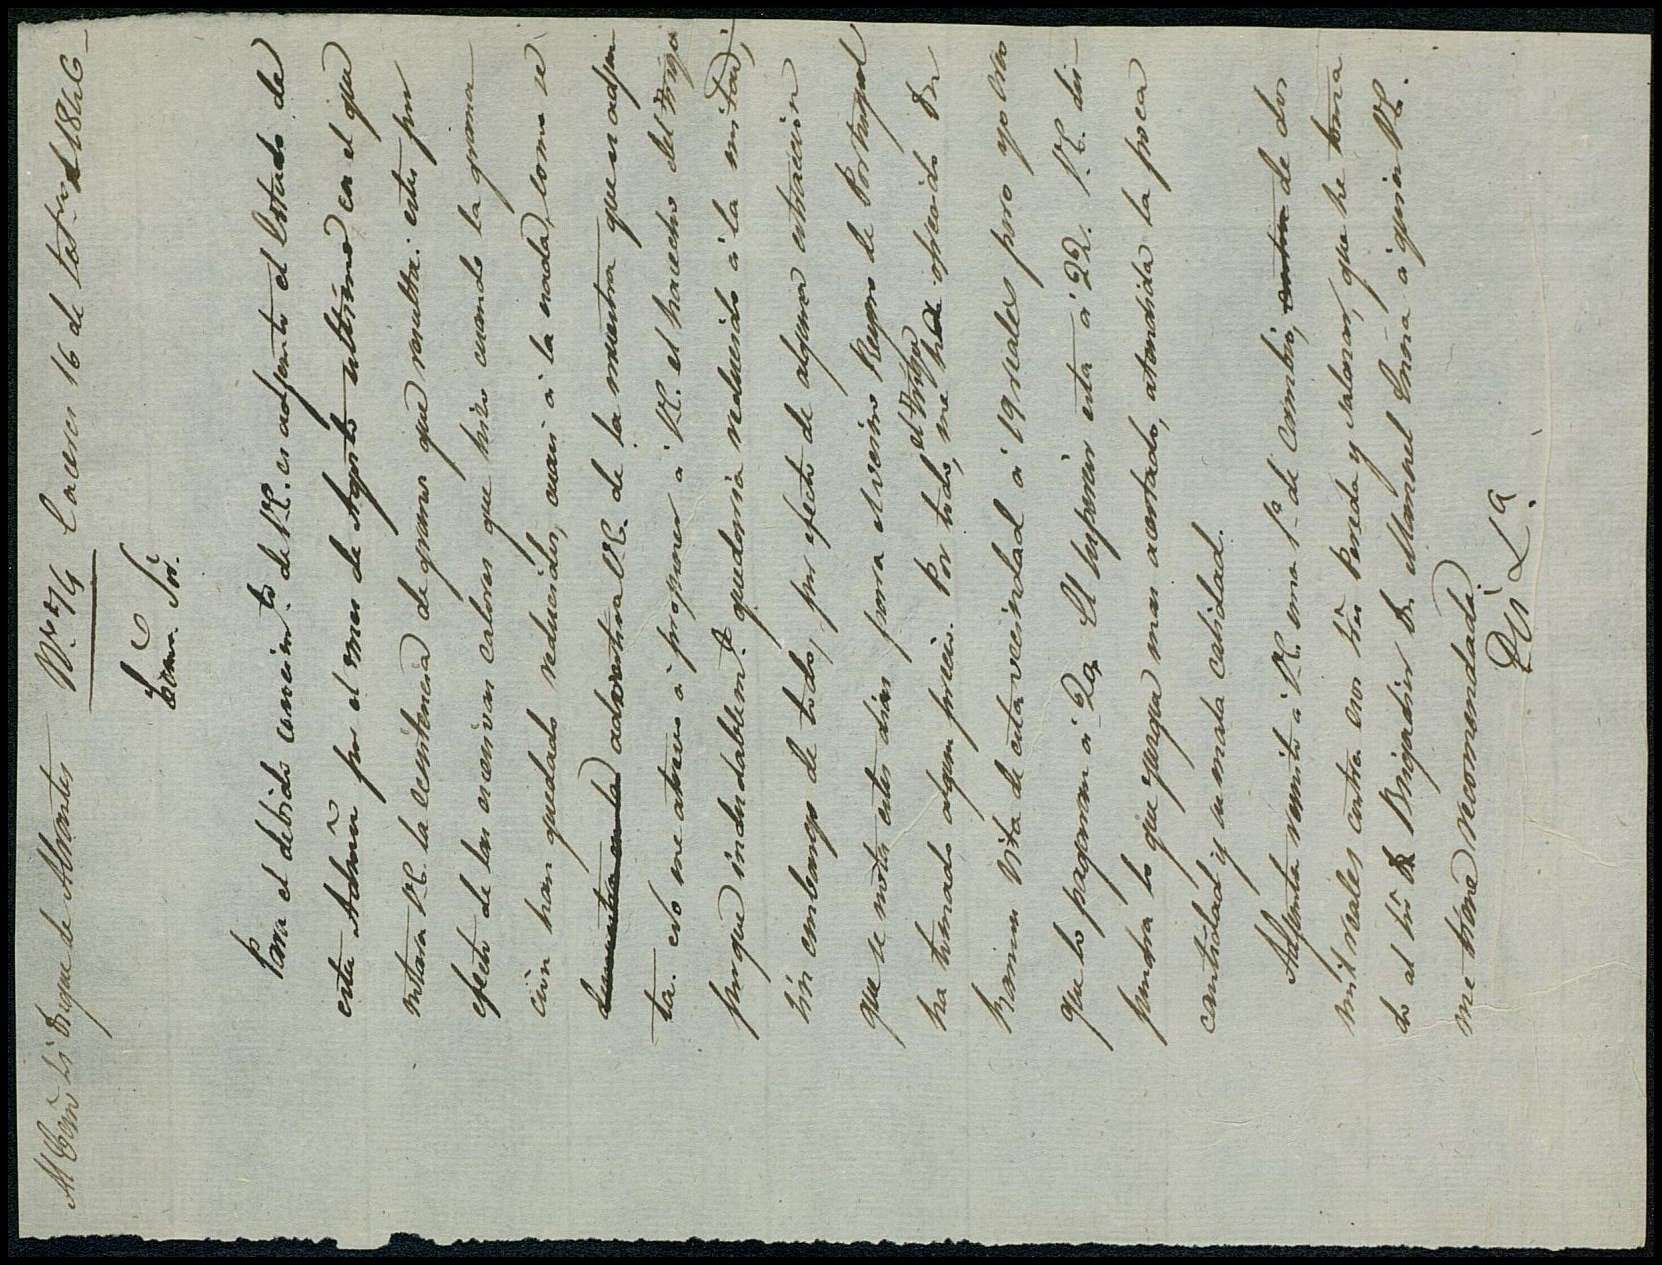 Al Exmo Sr Duque de Abrantes Nº 74 Caceres 16 de 1846
Exmo. Sor.
Para el debido conocimto de V.E. es adjunto el Estado de
esta Admon por el mes de Agosto ultimo en el que
notara V.E. la existencia de granos que resulta: estos por
efecto de los escesivos calores que hizo cuando la grana
cion han quedado reducidos, cuasi á la nada, como se
demuestra en la advertira V.E. de la muestra que es adjun
ta. eso me atrevo á proponer á V.E. el hacerlo del trigo
porque indudablemte quedaria reducido á la mitad;
sin embargo de todo, por efecto de alguna estraccion
que se nota estos dias para el vecino Reyno de Portugal
ha tomado algun precio. Por todo el trigo, me ha ofrecido Dn
Ramon Vita de esta vecindad á 19 reales pero yo creo
que lo pagaran á 20. El superior esta á 22. V.E. dis-
pondra lo que juzgue mas acertado, atendida la poca
cantidad y su mala calidad.
Adjunta remito á V.E. una 1ª de cambio, contra de dos
mil reales contra los Sres Pereda y Salazar, que he toma
do al Sr Brigadier D. Manuel á quien V.E.
me tiene recomendado.
D. L.ª